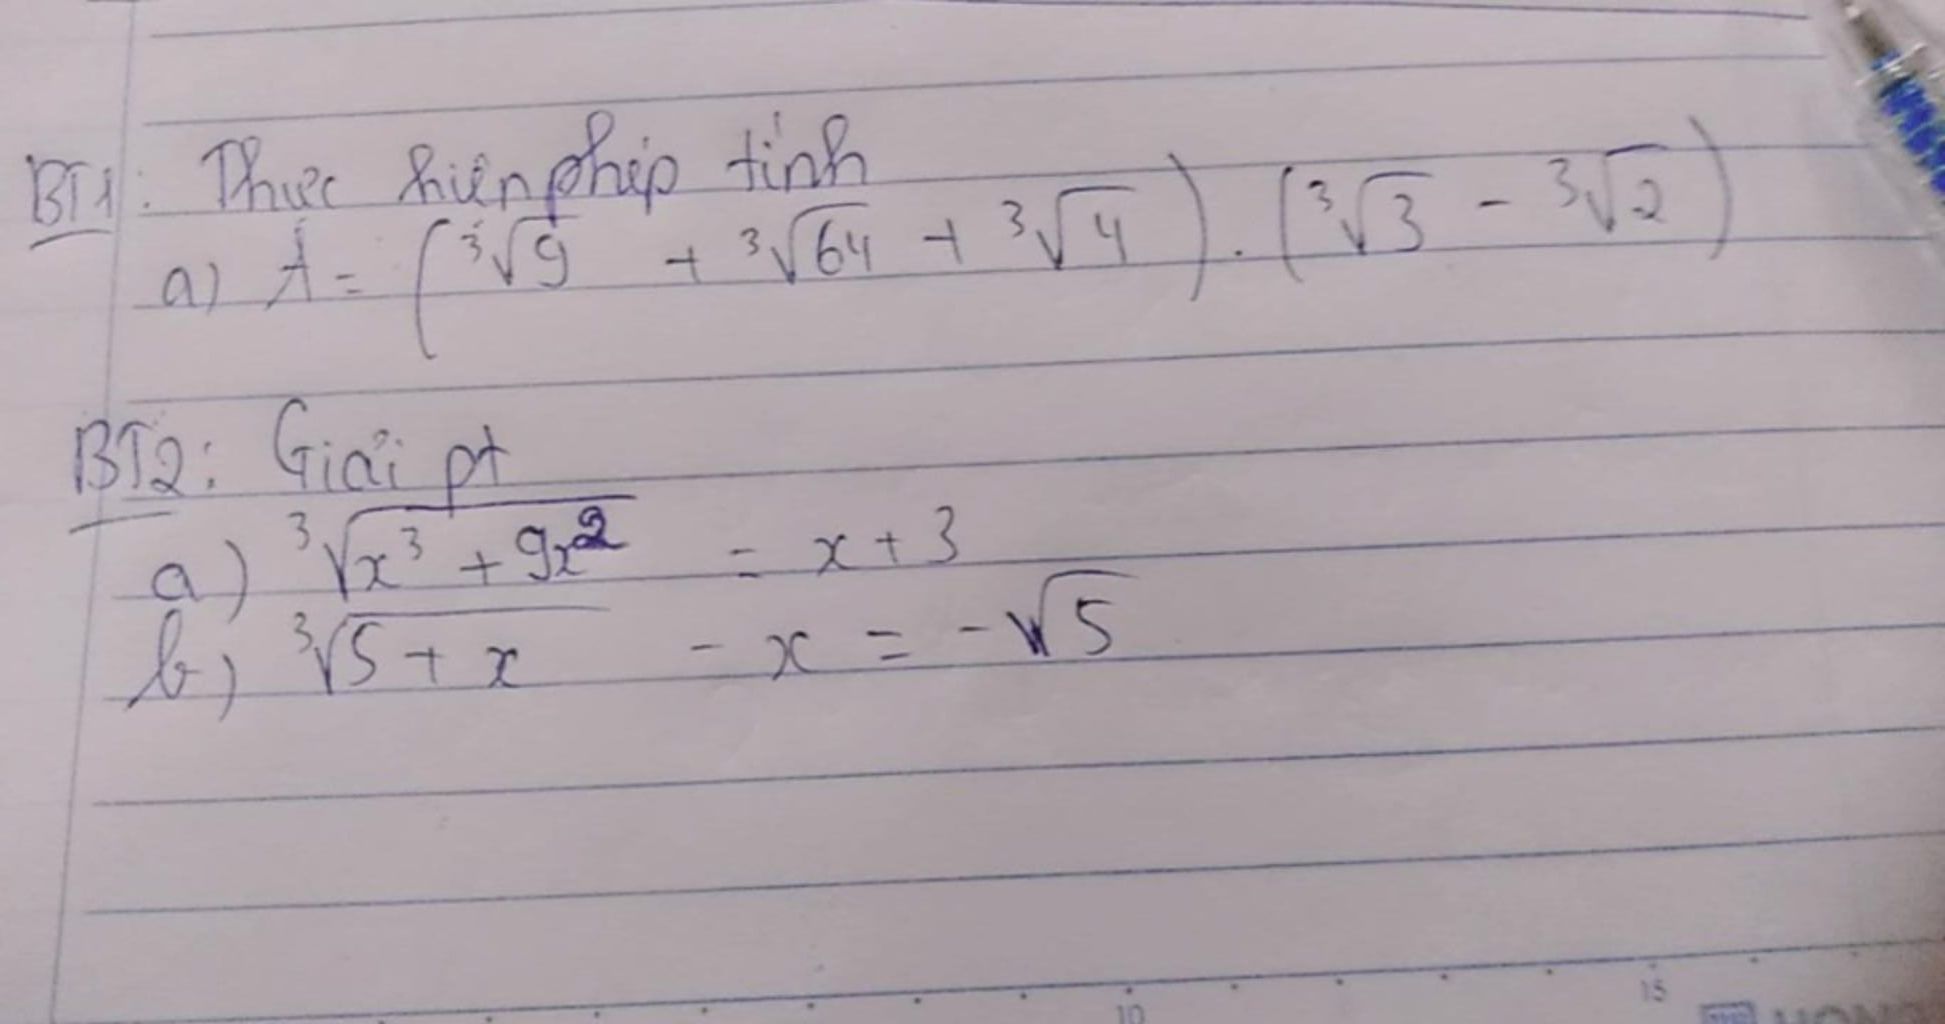 BT1: Thực hiện phép tính
a) A = (∛9 + ∛64 + ∛4) . (∛3 - ∛2)
BT2: Giải pt
a) ∛(x³ + 9x²) = x + 3
b) ∛(5 + x) - x = -√5
10 15